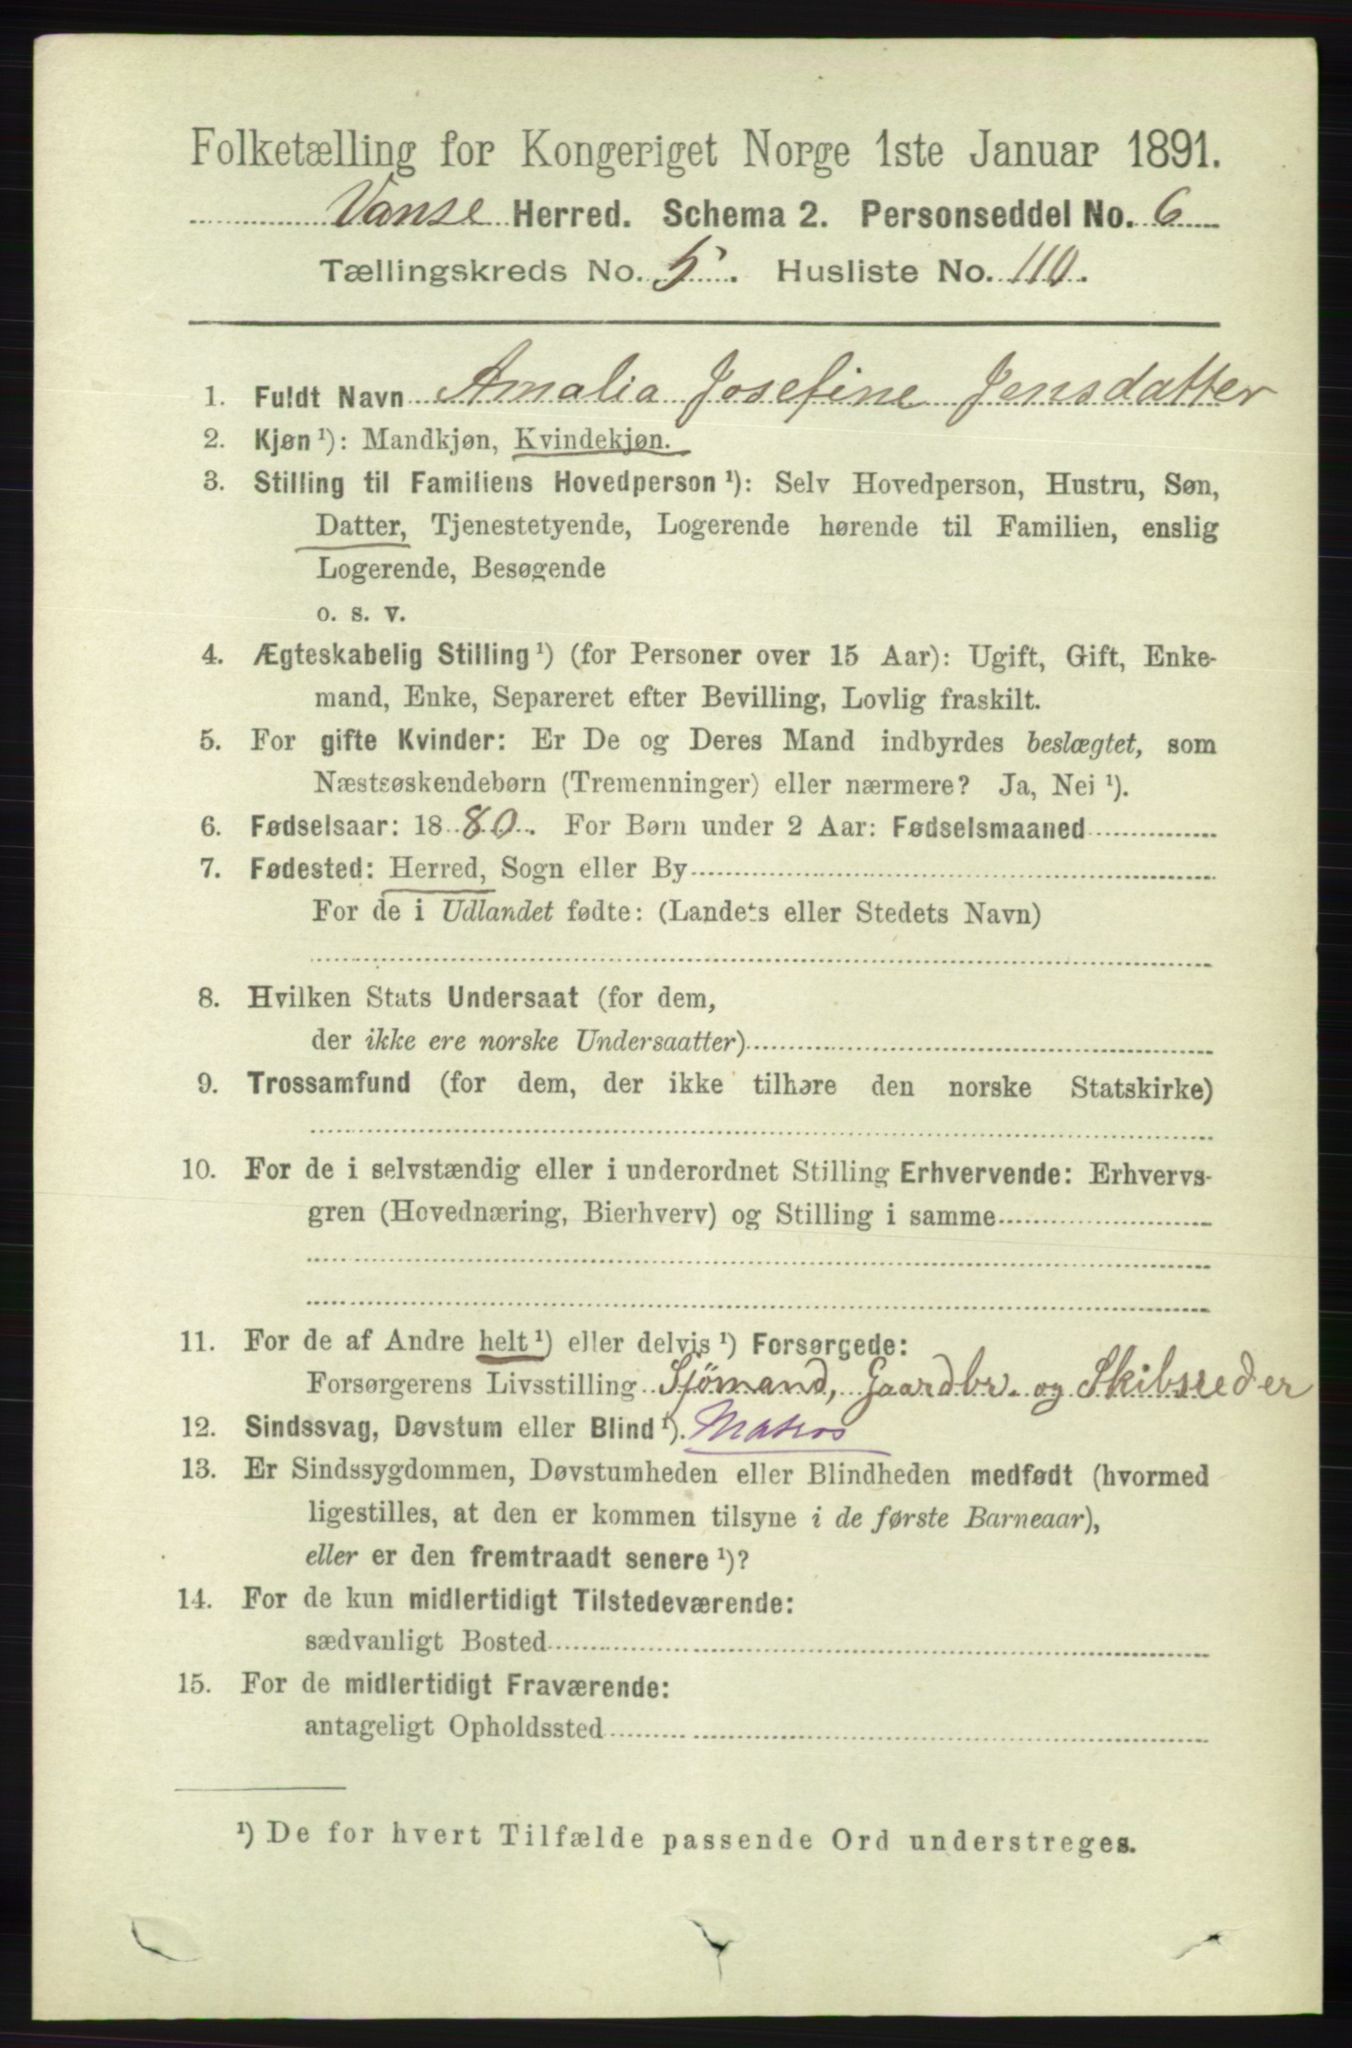 Folketælling for Kongeriget Norge 1ste Januar 1891.
Vanse Herred. Schema 2. Personseddel No. 6
Tællingskreds No. 5. Husliste No. 110.
1. Fuldt Navn Amalia Josefine Jensdatter
2. Kjøn ¹): Mandkjøn, Kvindekjøn.
3. Stilling til Familiens Hovedperson ¹): Selv Hovedperson, Hustru, Søn,
Datter, Tjenestetyende, Logerende hørende til Familien, enslig
Logerende, Besøgende
o. s. v.
4. Ægteskabelig Stilling ¹) (for Personer over 15 Aar): Ugift, Gift, Enke-
mand, Enke, Separeret efter Bevilling, Lovlig fraskilt.
5. For gifte Kvinder: Er De og Deres Mand indbyrdes beslægtet, som
Næstsøskendebørn (Tremenninger) eller nærmere? Ja, Nei ¹).
6. Fødselsaar: 1880. For Børn under 2 Aar: Fødselsmaaned
7. Fødested: Herred, Sogn eller By
For de i Udlandet fødte: (Landets eller Stedets Navn)
8. Hvilken Stats Undersaat (for dem,
der ikke ere norske Undersaatter)
9. Trossamfund (for dem, der ikke tilhøre den norske Statskirke)
10. For de i selvstændig eller i underordnet Stilling Erhvervende: Erhvervs-
gren (Hovednæring, Bierhverv) og Stilling i samme
11. For de af Andre helt ¹) eller delvis ¹) Forsørgede:
Forsørgerens Livsstilling Sjömand, Gaardbr. og Skibsreder
12. Sindssvag, Døvstum eller Blind ¹). Matros
13. Er Sindssygdommen, Døvstumheden eller Blindheden medfødt (hvormed
ligestilles, at den er kommen tilsyne i de første Barneaar),
eller er den fremtraadt senere ¹)?
14. For de kun midlertidigt Tilstedeværende:
sædvanligt Bosted
15. For de midlertidigt Fraværende:
antageligt Opholdssted
¹) De for hvert Tilfælde passende Ord understreges.